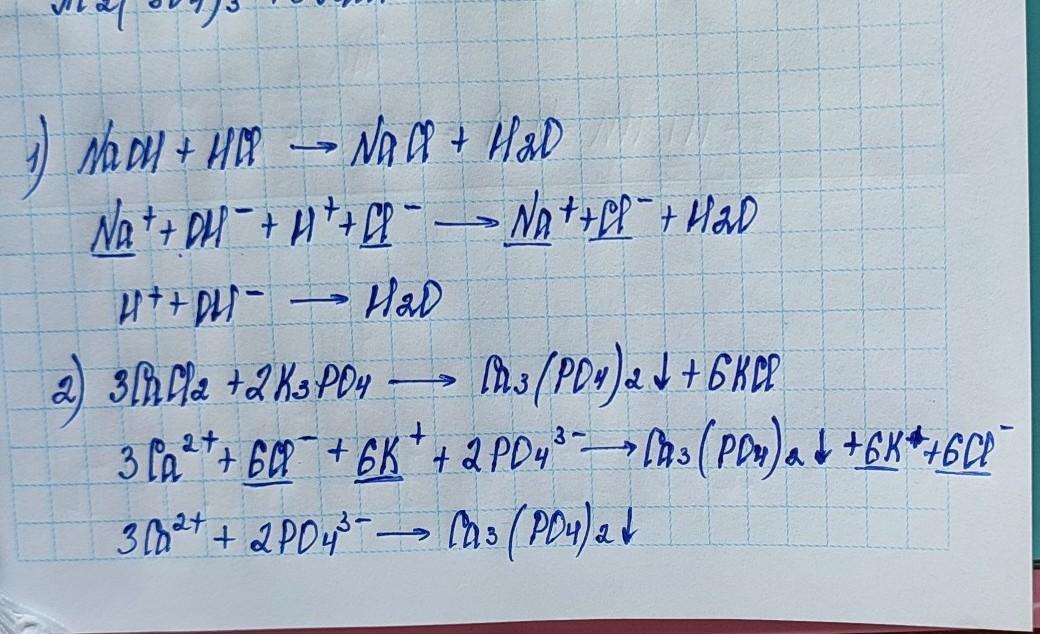 1) NaOH + HCl → NaCl + H2O
Na⁺ + OH⁻ + H⁺ + Cl⁻ → Na⁺ + Cl⁻ + H2O
H⁺ + OH⁻ → H2O
2) 3CaCl2 + 2K3PO4 → Ca3(PO4)2↓ + 6KCl
3Ca²⁺ + 6Cl⁻ + 6K⁺ + 2PO4³⁻ → Ca3(PO4)2↓ + 6K⁺ + 6Cl⁻
3Ca²⁺ + 2PO4³⁻ → Ca3(PO4)2↓